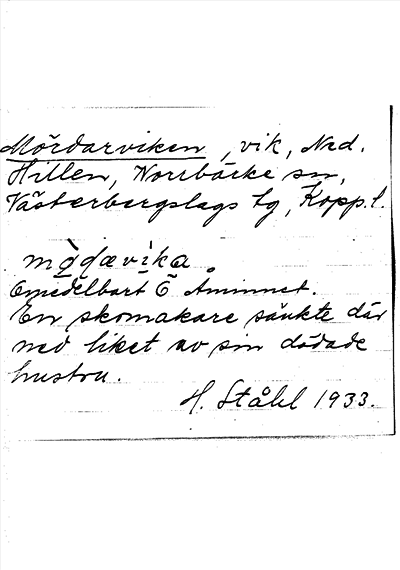 Mördarviken, vik, Ned.
Hillen, Norrbärke sn,
Västerbergslags tg, Kopp. l.
mö̀ḍævi̇̀ka.
Omedelbart Ö Aminnet.
En skomakare sänkte där
ned liket av sin dödade
hustru.
H. Ståhl 1933.